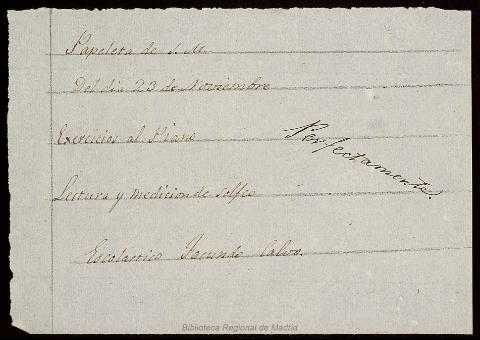 Papeleta de S. M.
Del dia 23 de Noviembre
Exercicios al Piano
Perfectamente.
Lectura y medicion de Solfeo
Escolastico Facundo Calvo.
Biblioteca Regional de Madrid